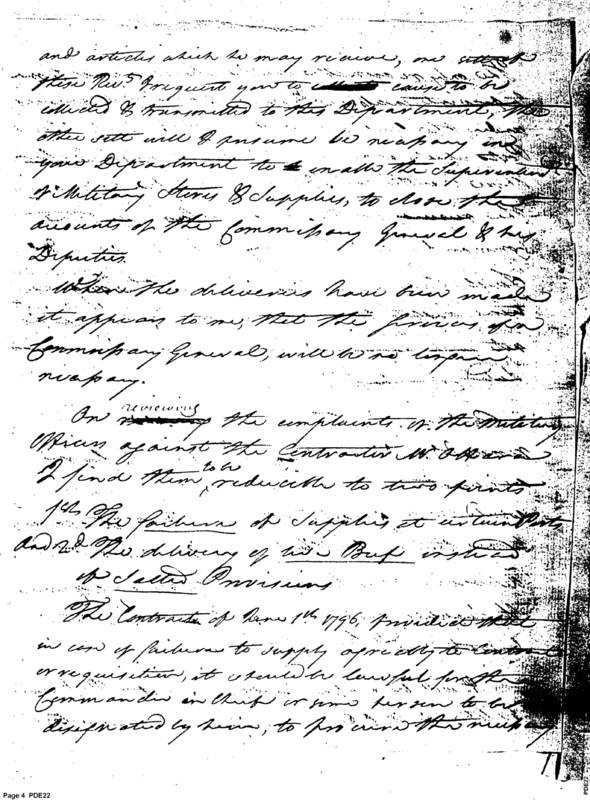 and articles which he may receive, one sett of
these Rects. I request you to cause to be
collected & transmitted to this Department, the
other sett will I presume be necessary in
your Department to enable the Superintendt.
of Military Stores & Supplies, to close the
accounts of the Commissary General & his
Deputies.
When the deliveries have been made
it appears to me, that the services of a
Commissary General, will be no longer
necessary.
reviewing
On the complaints of the Military
Officers against the Contractor Mr. O Hara
I find them to be reducible to two points
1st. The failure of Supplies at certain Posts
And 2d. The delivery of live Beef instead
of Salted Provisions
The Contract of June 1st. 1796, provided that
in case of failure to supply agreeably to Contract
or requisition, it should be lawful for the
Commander in Chief or some person to be
designated by him, to procure the necessary
Page 4 PDE22
PDE22